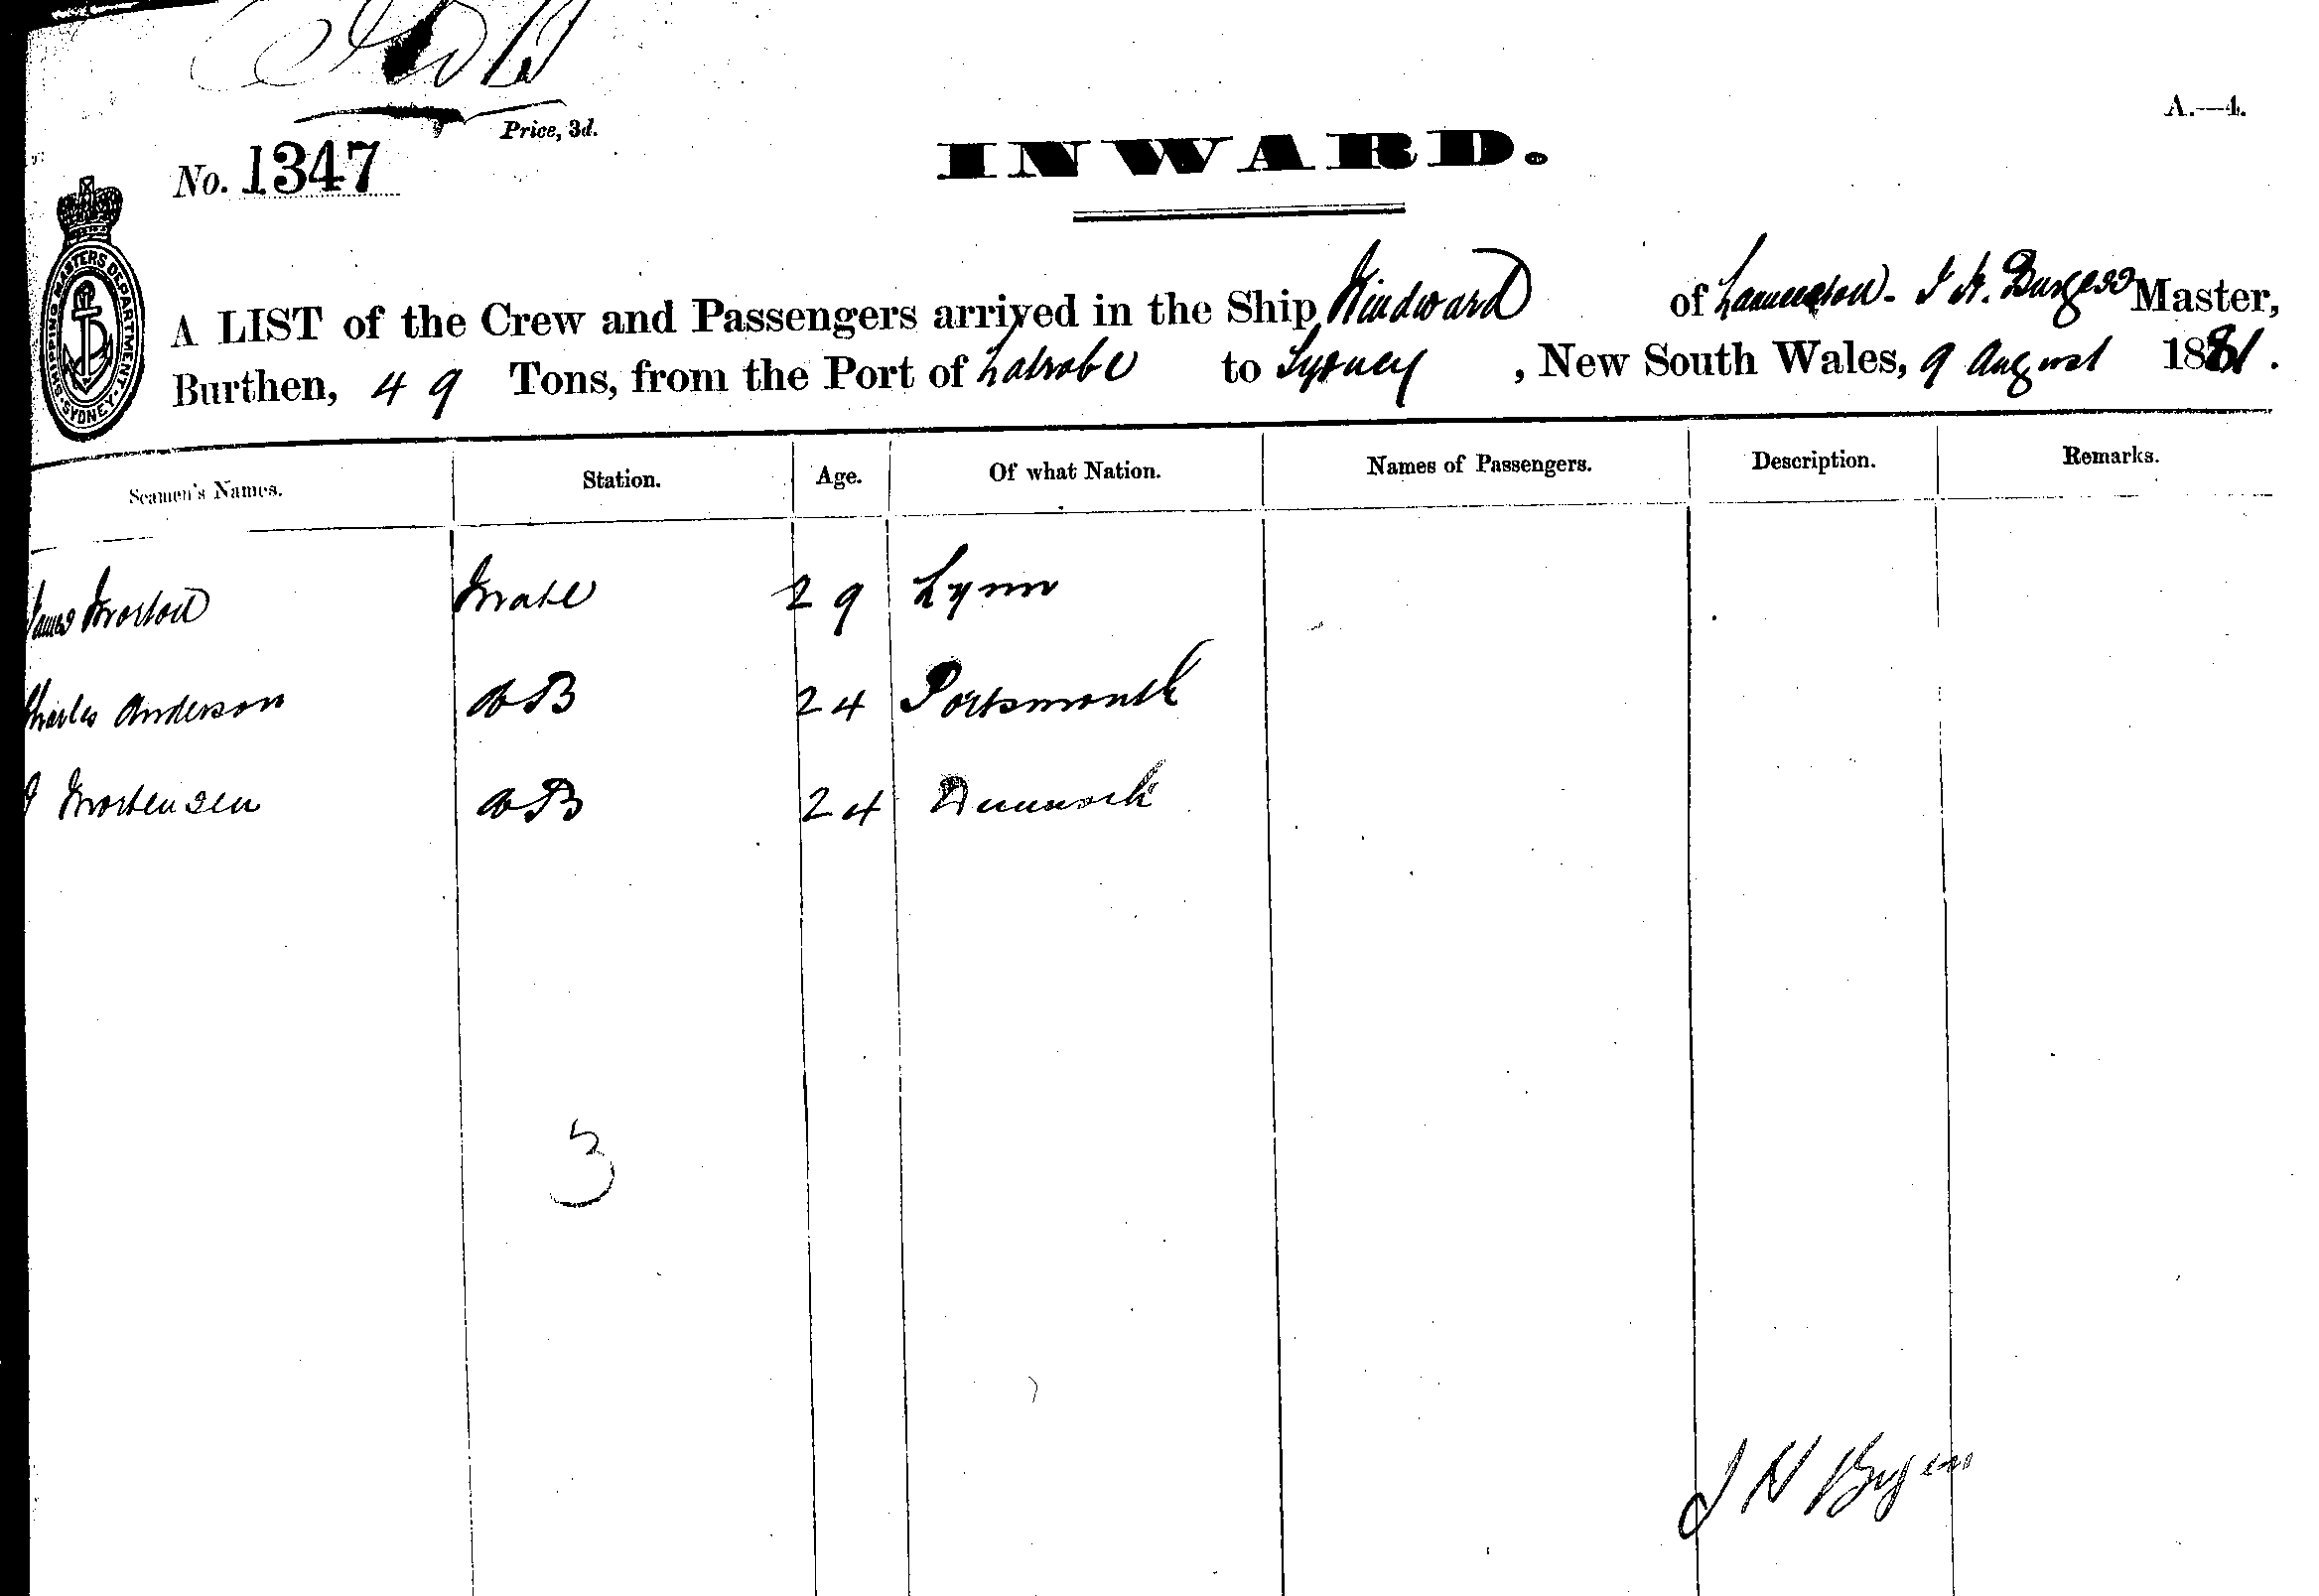 Price, 3d.
A.—4.
No. 1347
INWARD.
SHIPPING MASTERS DEPARTMENT. SYDNEY.
A LIST of the Crew and Passengers arrived in the Ship Windward of Launceston. J H. Burgess Master,
Burthen, 49 Tons, from the Port of Latrobe to Sydney, New South Wales, 9 August 1881.
Seamen's Names. Station. Age. Of what Nation. Names of Passengers. Description. Remarks.
James Morton Mate 29 Lynn
Charles Anderson AB 24 Portsmouth
J Mortensen AB 24 Denmark
3
J H Burgess